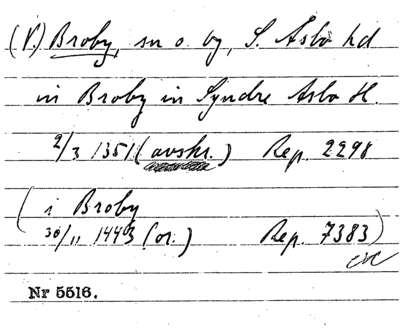 (V.) Broby, sn o. by, S. Åsbo hd
in Broby in Syndre Asbo H.
2/3 1351 (avskr.) Rep. 2298
( i Broby
30/11 1443 (or.) Rep. 7383)
Nr 5516.